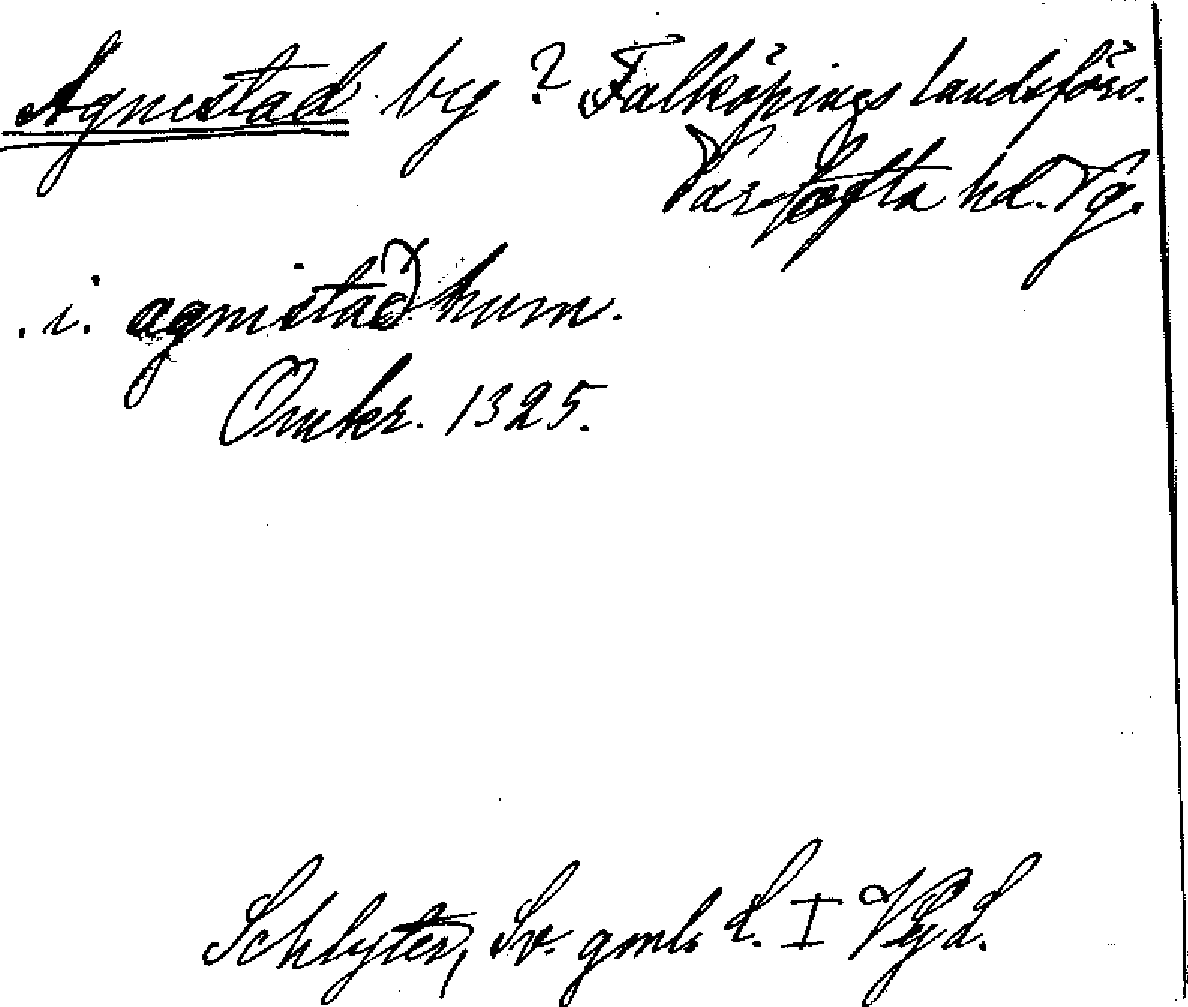 Agnestad by? Falköpings landsförs.
Vartofta hd. Vg.
.i. agnistaðhum.
Omkr. 1325.
Schlyter, Sv. gmla L. I VgL.